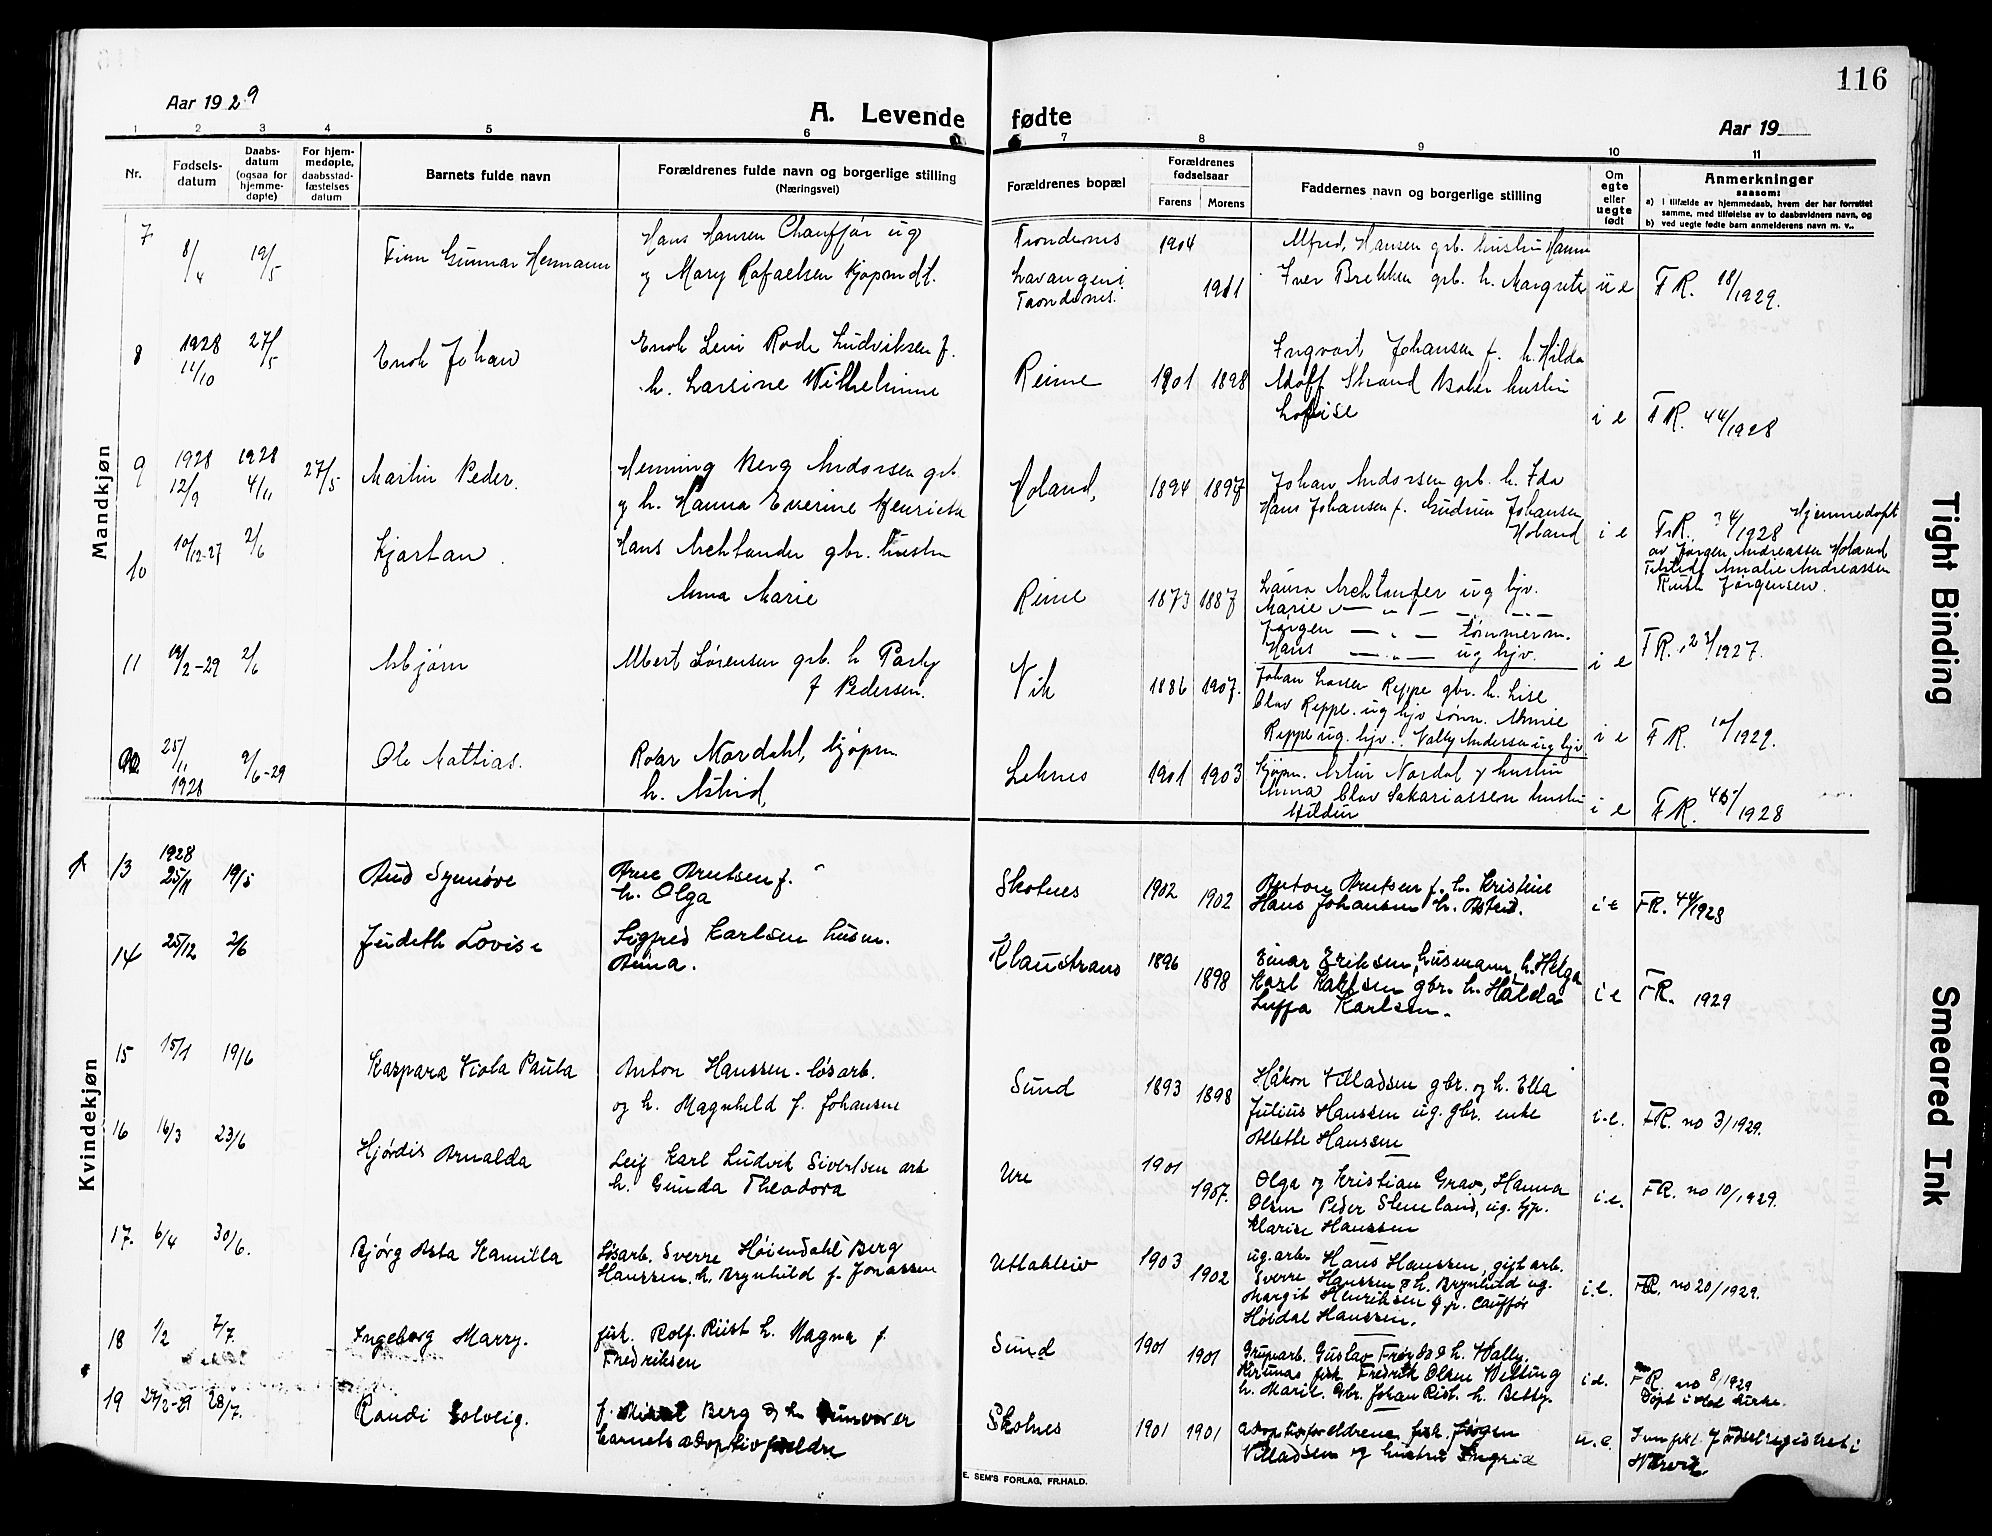 116
Aar 1929
A. Levende fødte
Aar 19
1 2 3 4 5 6 7 8 9 10 11
Nr.
Fødsels-
datum
Daabs-
datum
(ogsaa for
hjemme-
døpte)
For hjem-
medøpte,
daabsstad-
fæstelses
datum
Barnets fulde navn
Forældrenes fulde navn og borgerlige stilling
(Næringsvei)
Forældrenes bopæl
Forældrenes
fødselsaar
Farens Morens
Faddernes navn og borgerlige stilling
Om
egte
eller
uegte
født
Anmerkninger
saasom:
a) i tilfælde av hjemmedaab, hvem der har forrettet
samme, med tilføielse av to daabsvidners navn, og
b) ved uegte fødte barn anmelderens navn m. v..
Mandkjøn
7 8/4 19/5 Finn Gunnar Hermann
Hans Hansen Chauffør ug
og Mary Rafaelsen
Trondenes
Lavangen i
Trondenes.
1904 1911
Alfred Hansen grb. hustru Hanna
Iver Brekken grb. h. Margrete
u e FR. 18/1929.
8 1928 11/10 27/5 Enok Johan
Enok Levi Rode Ludviksen f.
h. Larsine Wilhelmine
Reine 1901 1898
Ingvart Johansen f. h. Hilda
Adolf Strand Baker hustru
Lovise
i e FR. 44/1928
9 1928 12/9 1928 4/11 27/5 Martin Peder.
Henning Berg Andorsen grb.
og h. Hanna Enerine Henriette
Holand, 1894 1897
Johan Andorsen grb. h. Ida
Hans Johansen f. Gudrun Johansen
Holand
i e FR. 34/1928 Hjemmedøpt
av Jørgen Andreassen Holand
Amalie Andreassen
Ruth Jørgensen.
10 10/12-27 2/6 Kjartan.
Hans Aechtander gbr. hustru
Anna Marie
Reine 1873 1887
Laura Aechtander ug hjv.
Marie — „ —
Jørgen — „ — tømmerm.
Hans — „ — ug hjv.
i e FR. 23/1927.
11 19/2-29 2/6 Asbjørn
Albert Sørensen grb. h
f Pedersen.
Vik 1886 1907.
Johan Larsen Reppe gbr. h. Lise
Olav Reppe. ug hjv sønn.
Reppe ug. hjv. Valby Andersen ug hjv
i e FR. 10/1929.
25/11 1928 9/6-29 Ole Mattias.
Roar Nordahl, kjøpm
h. Astrid
Leknes 1901 1903
Kjøpm. Artur Nordal og hustru
Anna Olav Sakariassen hustru
Hildur
i e FR. 45/1928
Kvindekjøn
13 1928 25/11 19/5 Aud Synnøve
Arne Arntsen f.
h. Olga
Skotnes 1902 1902
Anton Arntsen f. h. Kristine
Hans Johansen h. Astrid.
i e FR. 44/1928
14 25/12 2/6 Judith Lovise
Sigfred Karlsen husm.
Anna.
Klaustrans 1896 1898
Einar Eriksen, husmann, h. Helga
Karl Karlsen gbr. h. Halda
Luffa Karlsen.
i e FR. 1929
15 15/1 19/6 Kaspara Viola Paula
Anton Hanssen. løsarb.
og h. Magnhild f. Johansen
Sund 1893 1898
Håkon Villadsen gbr. og h. Ella
Julius Hanssen ug. gbr. enke
Alette Hanssen
i.e. FR. no 3/1929.
16 16/3 23/6 Hjørdis Arnalda
Leif Karl Ludvik Sivertsen arb
h. Gunda Theodora
Ure 1901 1907.
Olga og Kristian Grav, Hanna
Olsen Peder Steneland, ug. hjv.
Klarise Hanssen
i.e. FR. no 10/1929.
17. 6/4 30/6. Bjørg Asta Kamilla
Løsarb. Sverre Høiendahl Berg
Hanssen. h. Brynhild f. Jonassen
Uttakleiv 1903 1902
ug. arb. Hans Hanssen, gift arb.
Sverre Hanssen & h. Brynhild ug.
Margit Henriksen Cauffør
Høidal Hanssen.
i.e. FR. no 20/1929.
18 1/2 7/7. Ingeborg Marry.
fisk. Rolf Rist h. Magna f.
Fredriksen
Sund 1901 1901
Gruparb. Gustav & h. Wally
Kirunas fisk. Fredrik Olsen
h. Marie. Gbr. Johan Rist h. Betty.
i.e. FR. no 8/1929
Døpt i Kirke.
19 27/2-29 28/7. Randi Solveig.
f. Berg & h. Gunvor er
barnets adoptivforeldre
Skotnes 1901 1901
adoptivforeldrene fisk. Jørgen
Villadsen og hustru Ingrid
u.e. Innført Fødselregistret i
Narvik.
E. SEM'S FORLAG, FR.HALD.
Tight Binding
Smeared Ink